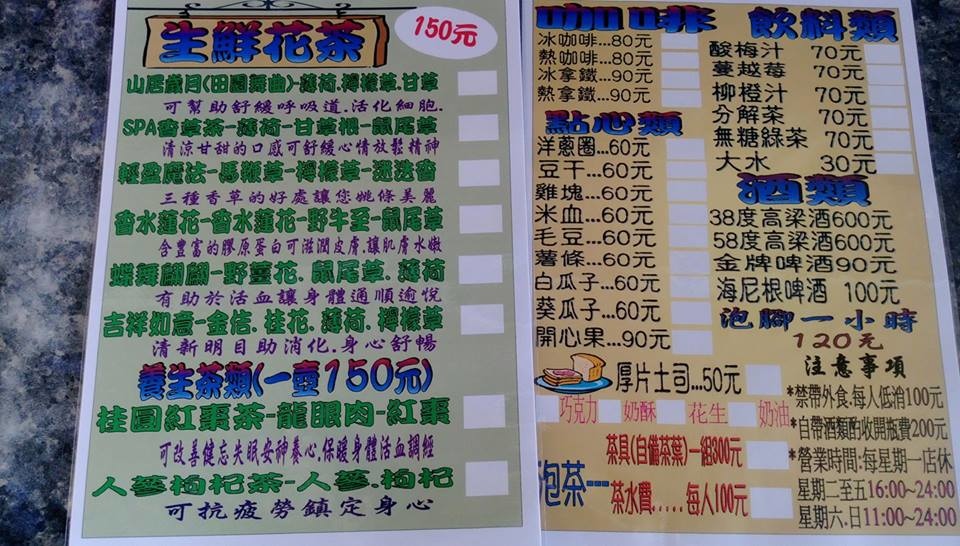 生鮮花茶 150元
山居歲月(田園舞曲)-薄荷.檸檬草.甘草
可幫助舒緩呼吸道.活化細胞.
SPA香草茶-薄荷-甘草根-鼠尾草
清涼甘甜的口感可舒緩心情放鬆精神
輕盈魔法-馬鞭草-檸檬草-迷迭香
三種香草的好處讓您姚條美麗
香水蓮花-香水蓮花-野牛至-鼠尾草
含豐富的膠原蛋白可滋潤皮膚.讓肌膚水嫩
蝶舞翩翩-野薑花.鼠尾草.薄荷
有助於活血讓身體通順逾悅
吉祥如意-金桔.桂花.薄荷.檸檬草
清新明目助消化.身心舒暢
養生茶類(一壺150元)
桂圓紅棗茶-龍眼肉-紅棗
可改善健忘失眠安神養心.保暖身體活血調經
人蔘枸杞茶-人蔘.枸杞
可抗疲勞鎮定身心
咖啡
冰咖啡...80元
熱咖啡...80元
冰拿鐵...90元
熱拿鐵...90元
點心類
洋蔥圈...60元
豆干...60元
雞塊...60元
米血...60元
毛豆...60元
薯條...60元
白瓜子...60元
葵瓜子...60元
開心果...90元
厚片土司...50元
巧克力 奶酥 花生 奶油
泡茶---
茶具(自備茶葉)一組300元
茶水費.....每人100元
飲料類
酸梅汁 70元
蔓越莓 70元
柳橙汁 70元
分解茶 70元
無糖綠茶 70元
大水 30元
酒類
38度高梁酒600元
58度高梁酒600元
金牌啤酒90元
海尼根啤酒 100元
泡腳一小時
120元
注意事項
*禁帶外食.每人低消100元
*自帶酒類酌收開瓶費200元
*營業時間:每星期一店休
星期二至五16:00~24:00
星期六.日11:00~24:00